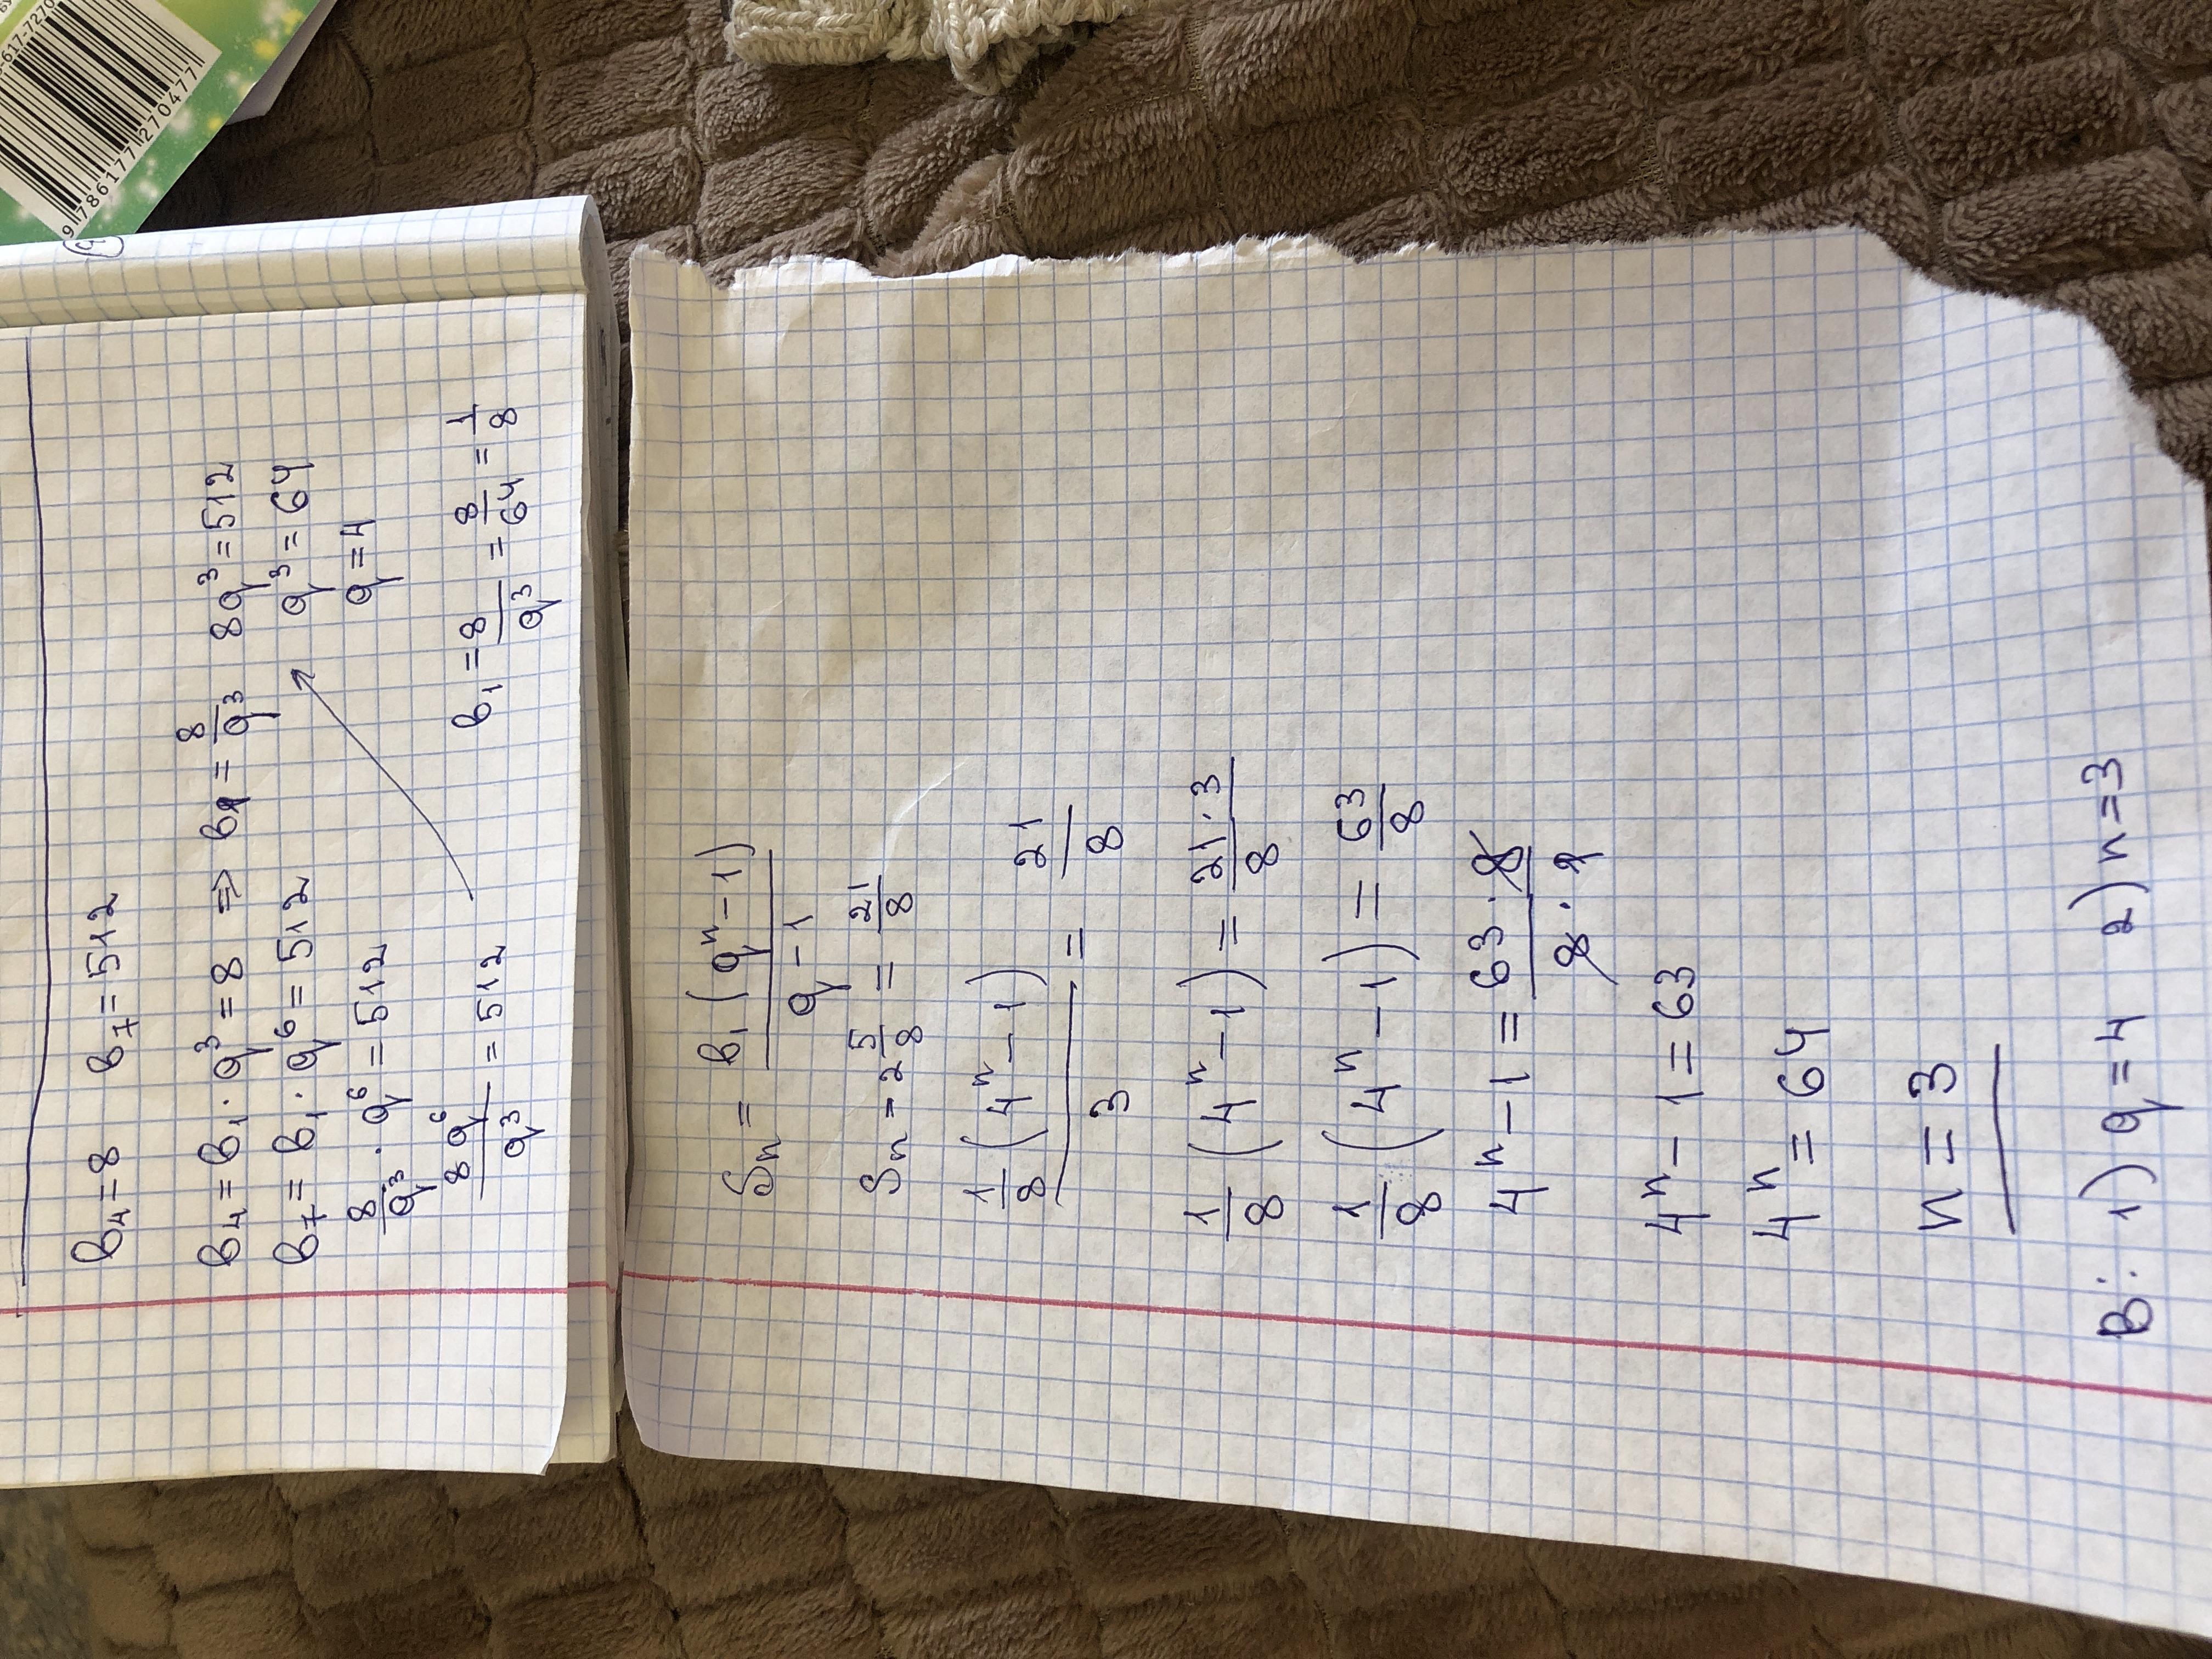 617-7270
9 786177 270477
b₄ = 8 b₇ = 512
b₄ = b₁ · q³ = 8 ⇒ b₁ = 8/q³ 8q³ = 512
b₇ = b₁ · q⁶ = 512 q³ = 64
8/q³ · q⁶ = 512 q = 4
8q⁶/q³ = 512 b₁ = 8/q³ = 8/64 = 1/8
Sₙ = b₁(qⁿ-1)/q-1
Sₙ = 2 5/8 = 21/8
1/8(4ⁿ-1)/3 = 21/8
1/8(4ⁿ-1) = 21·3/8
1/8(4ⁿ-1) = 63/8
4ⁿ-1 = 63·8/8·1
4ⁿ-1 = 63
4ⁿ = 64
n = 3
В: 1) q = 4 2) n = 3